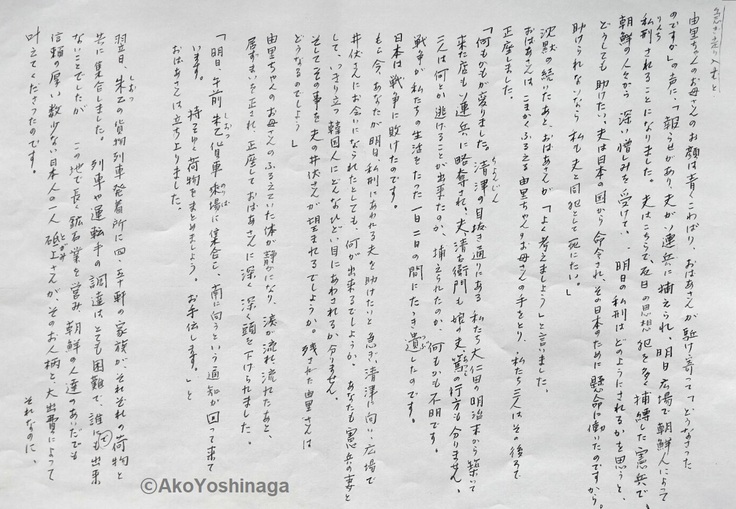 由里ちゃんのお母さんのお顔は青くこわばり、おばあさんが駈け寄って「どうなさった
のですか」の声に、「報らせがあり、夫がソ連兵に捕えられ、明日広場で朝鮮人によって
私刑されることになりました。夫はこちらで、在日の思想犯を多く捕縛した憲兵で、
朝鮮の人々から深い憎しみを受けて、明日の私刑はどのようにされるかを思うと、
どうしても助けたい、夫は日本の国から命令され、その日本のために懸命に働いたのですから。
助けられないなら私も夫と同犯として死にたい。」
沈黙の続いたあと、おばあさんが「よく考えましょう」と言いました。
おばあさんは、こまかくふるえる由里ちゃんのお母さんの手をとり、私たち二人はその後ろで
正座しました。
「何もかもが変りました。清津の目抜き通りにある私たち大仁田の明治末から築いて
せいしん
来た店もソ連兵に略奪され、夫、清右衛門も娘の夫、篤の行方も分りません。
二人は何とか逃げることが出来たのか、捕えられたのか、何もかも不明です。
戦争が私たちの生活をたった一日二日の間にたゝき潰したのです。
つぶ
日本は戦争に敗けたのです。
もし今、あなたが明日、私刑にあわれる夫を助けたいと急ぎ、清津に向い、広場で
井伏さんにお会いになられたとしても、何が出来るでしょうか、あなたも憲兵の妻と
して、いきり立つ韓国人にどんなひどい目にあわされるか分りません。
そしてその事を夫の井伏さんが望まれるでしょうか。残された由里さんは
どうなるのでしょう」
由里ちゃんのお母さんのふるえていた体が静かになり、涙が流れ流れたあと、
居ずまいを正され、正座しておばあさんに深く深く頭を下げられました。
「明日、午前朱乙貨車乗場に集合し、南に向うという通知が回って来て
しおつ
のりば
います。持てるだけ荷物をまとめましょう。お手伝します。」と
おばあさんは立ち上りました。
翌日、朱乙の貨物列車発着所に四、五十軒の家族がそれぞれの荷物と
しおつ
共に集合しました。列車や運転手の調達はとても困難で、誰にも出来
ないことでしたが、この地で長く鉱石業を営み、朝鮮の人達のあいだでも
信頼の厚い数少ない日本人の一人、砥上さんが、そのお人柄と大出費によって
とがみ
叶えてくださったのです。
それなのに、
©AkoYoshinaga